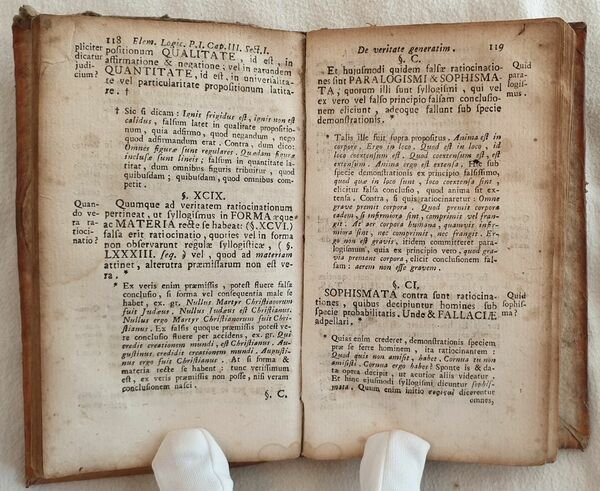 118 Elem. Logic. P.I. Cap. III. Sect. I.
pliciter
dicatur
judi-
cium?
positionum QUALITATE, id est, in
affirmatione & negatione: vel in earundem
QUANTITATE, id est, in universalita-
te vel particularitate propositionum latita-
re. †
† Sic si dicam: Ignis frigidus est, ignis non est
calidus, falsum latet in qualitate propositio-
num, quia adfirmo, quod negandum, nego
quod adfirmandum erat. Contra, dum dico:
Omnes figuræ sunt regulares. Quædam figuræ
inclusæ sunt lineis; falsum in quantitate la-
titat, dum omnibus figuris tribuitur, quod
quibusdam; quibusdam, quod omnibus compe-
tit.
§. XCIX.
Quan-
do ve-
ra ra-
tioci-
natio?
Quumque ad veritatem ratiocinationum
pertineat, ut syllogismus in FORMA æque
ac MATERIA recte se habeat: (§.XCVI.)
falsa erit ratiocinatio, quoties vel in forma
non observarunt regulæ syllogisticæ, (§.
LXXXIII. seq.) vel, quod ad materiam
attinet, alterutra præmissarum non est ve-
ra. *
* Ex veris enim præmissis, potest fluere falsa
conclusio, si forma vel consequentia male se
habet, ex. gr. Nullus Martyr Christianorum
fuit Judæus. Nullus Judæus est Christianus.
Nullus ergo Martyr Christianorum fuit Chri-
stianus. Ex falsis quoque præmissis potest ve-
re conclusio fluere per accidens, ex. gr. Qui
credit creationem mundi, est Christianus. Au-
gustinus credidit creationem mundi. Augusti-
nus ergo fuit Christianus. At si forma &
materia recte se habent; tunc verissimum
est, ex veris præmissis non posse, nisi veram
conclusionem nasci.
§. C.
De veritate generatim. 119
§. C.
Quid
para-
logis-
mus.
Et hujusmodi quidem falsæ ratiocinatio-
nes sint PARALOGISMI & SOPHISMA-
TA; quorum illi sunt syllogismi, qui vel
ex vero vel falso principio falsam conclusio-
nem eliciunt, adeoque fallunt sub specie
demonstrationis. *
* Talis ille fuit supra propositus. Anima est in
corpore. Ergo in loco. Quod est in loco, id
loco coextensum est. Quod coextensum est, est
extensum. Anima ergo est extensa. Hic sub
specie demonstrationis ex principio falsissimo,
quod quæ in loco sunt, loco coextensa sint,
elicitur falsa conclusio, quod anima sit ex-
tensa. Contra, si quis ratiocinaretur: Omne
grave premit corpora. Quod premit corpora
eadem, si infirmiora sint, comprimit vel fran-
git. At aer corpora humana, quamvis infir-
miora sint, nec comprimit, nec frangit. Er-
go non est gravis, itidem committeret paralo-
gismum, quia ex principio vero, quod gra-
via premant corpora, elicit conclusionem fal-
sam: aerem non esse gravem.
§. CI.
Quid
sophis-
ma?
SOPHISMATA contra sunt ratiocina-
tiones, quibus decipiuntur homines sub
specie probabilitatis. Unde & FALLACIÆ
adpellari. *
* Quias enim crederet, demonstrationis speciem
præ se ferre hominem, ita ratiocinantem:
Quod quis non amisit, habet. Cornua tu non
amisisti. Cornua ergo habes? Sponte is & da-
ta opera decipit, ut acutior aliis videatur.
Et hinc ejusmodi syllogismi dicuntur sophis-
mata. Quum enim initio dicerentur
omnes,